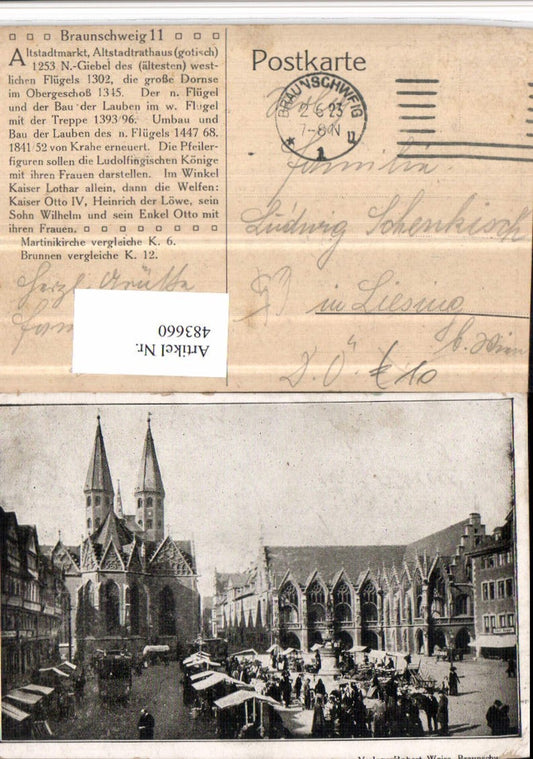 Braunschweig 11
Altstadtmarkt, Altstadtrathaus (gotisch)
1253 N.-Giebel des (ältesten) west-
lichen Flügels 1302, die große Dornse
im Obergeschoß 1345. Der n. Flügel
und der Bau der Lauben im w. Flügel
mit der Treppe 1393/96. Umbau und
Bau der Lauben des n. Flügels 1447 68.
1841/52 von Krahe erneuert. Die Pfeiler-
figuren sollen die Ludolfingischen Könige
mit ihren Frauen darstellen. Im Winkel
Kaiser Lothar allein, dann die Welfen:
Kaiser Otto IV, Heinrich der Löwe, sein
Sohn Wilhelm und sein Enkel Otto mit
ihren Frauen.
Martinikirche vergleiche K. 6.
Brunnen vergleiche K. 12.
Herzl. Grüße
Fam
Postkarte
BRAUNSCHWEIG
2 6 23
7-8 N
1 u
Familie
Ludwig Schenkisch
in Liesing
b. Wien
D.Ö. € 10
Artikel Nr.
483660
Verlag Robert Weise, Braunschw